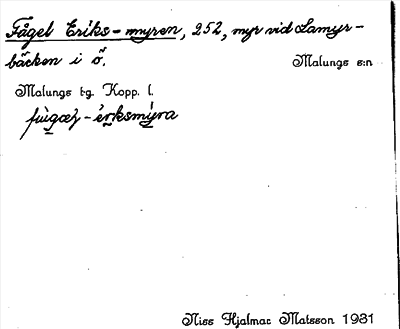 Fågel Eriks-myren, 252, myr vid Lamyr-
bäcken i ö.
Malungs s:n
Malungs t-g. Kopp. l.
fùgæl-èrksmýra
Niss Hjalmar Matsson 1931